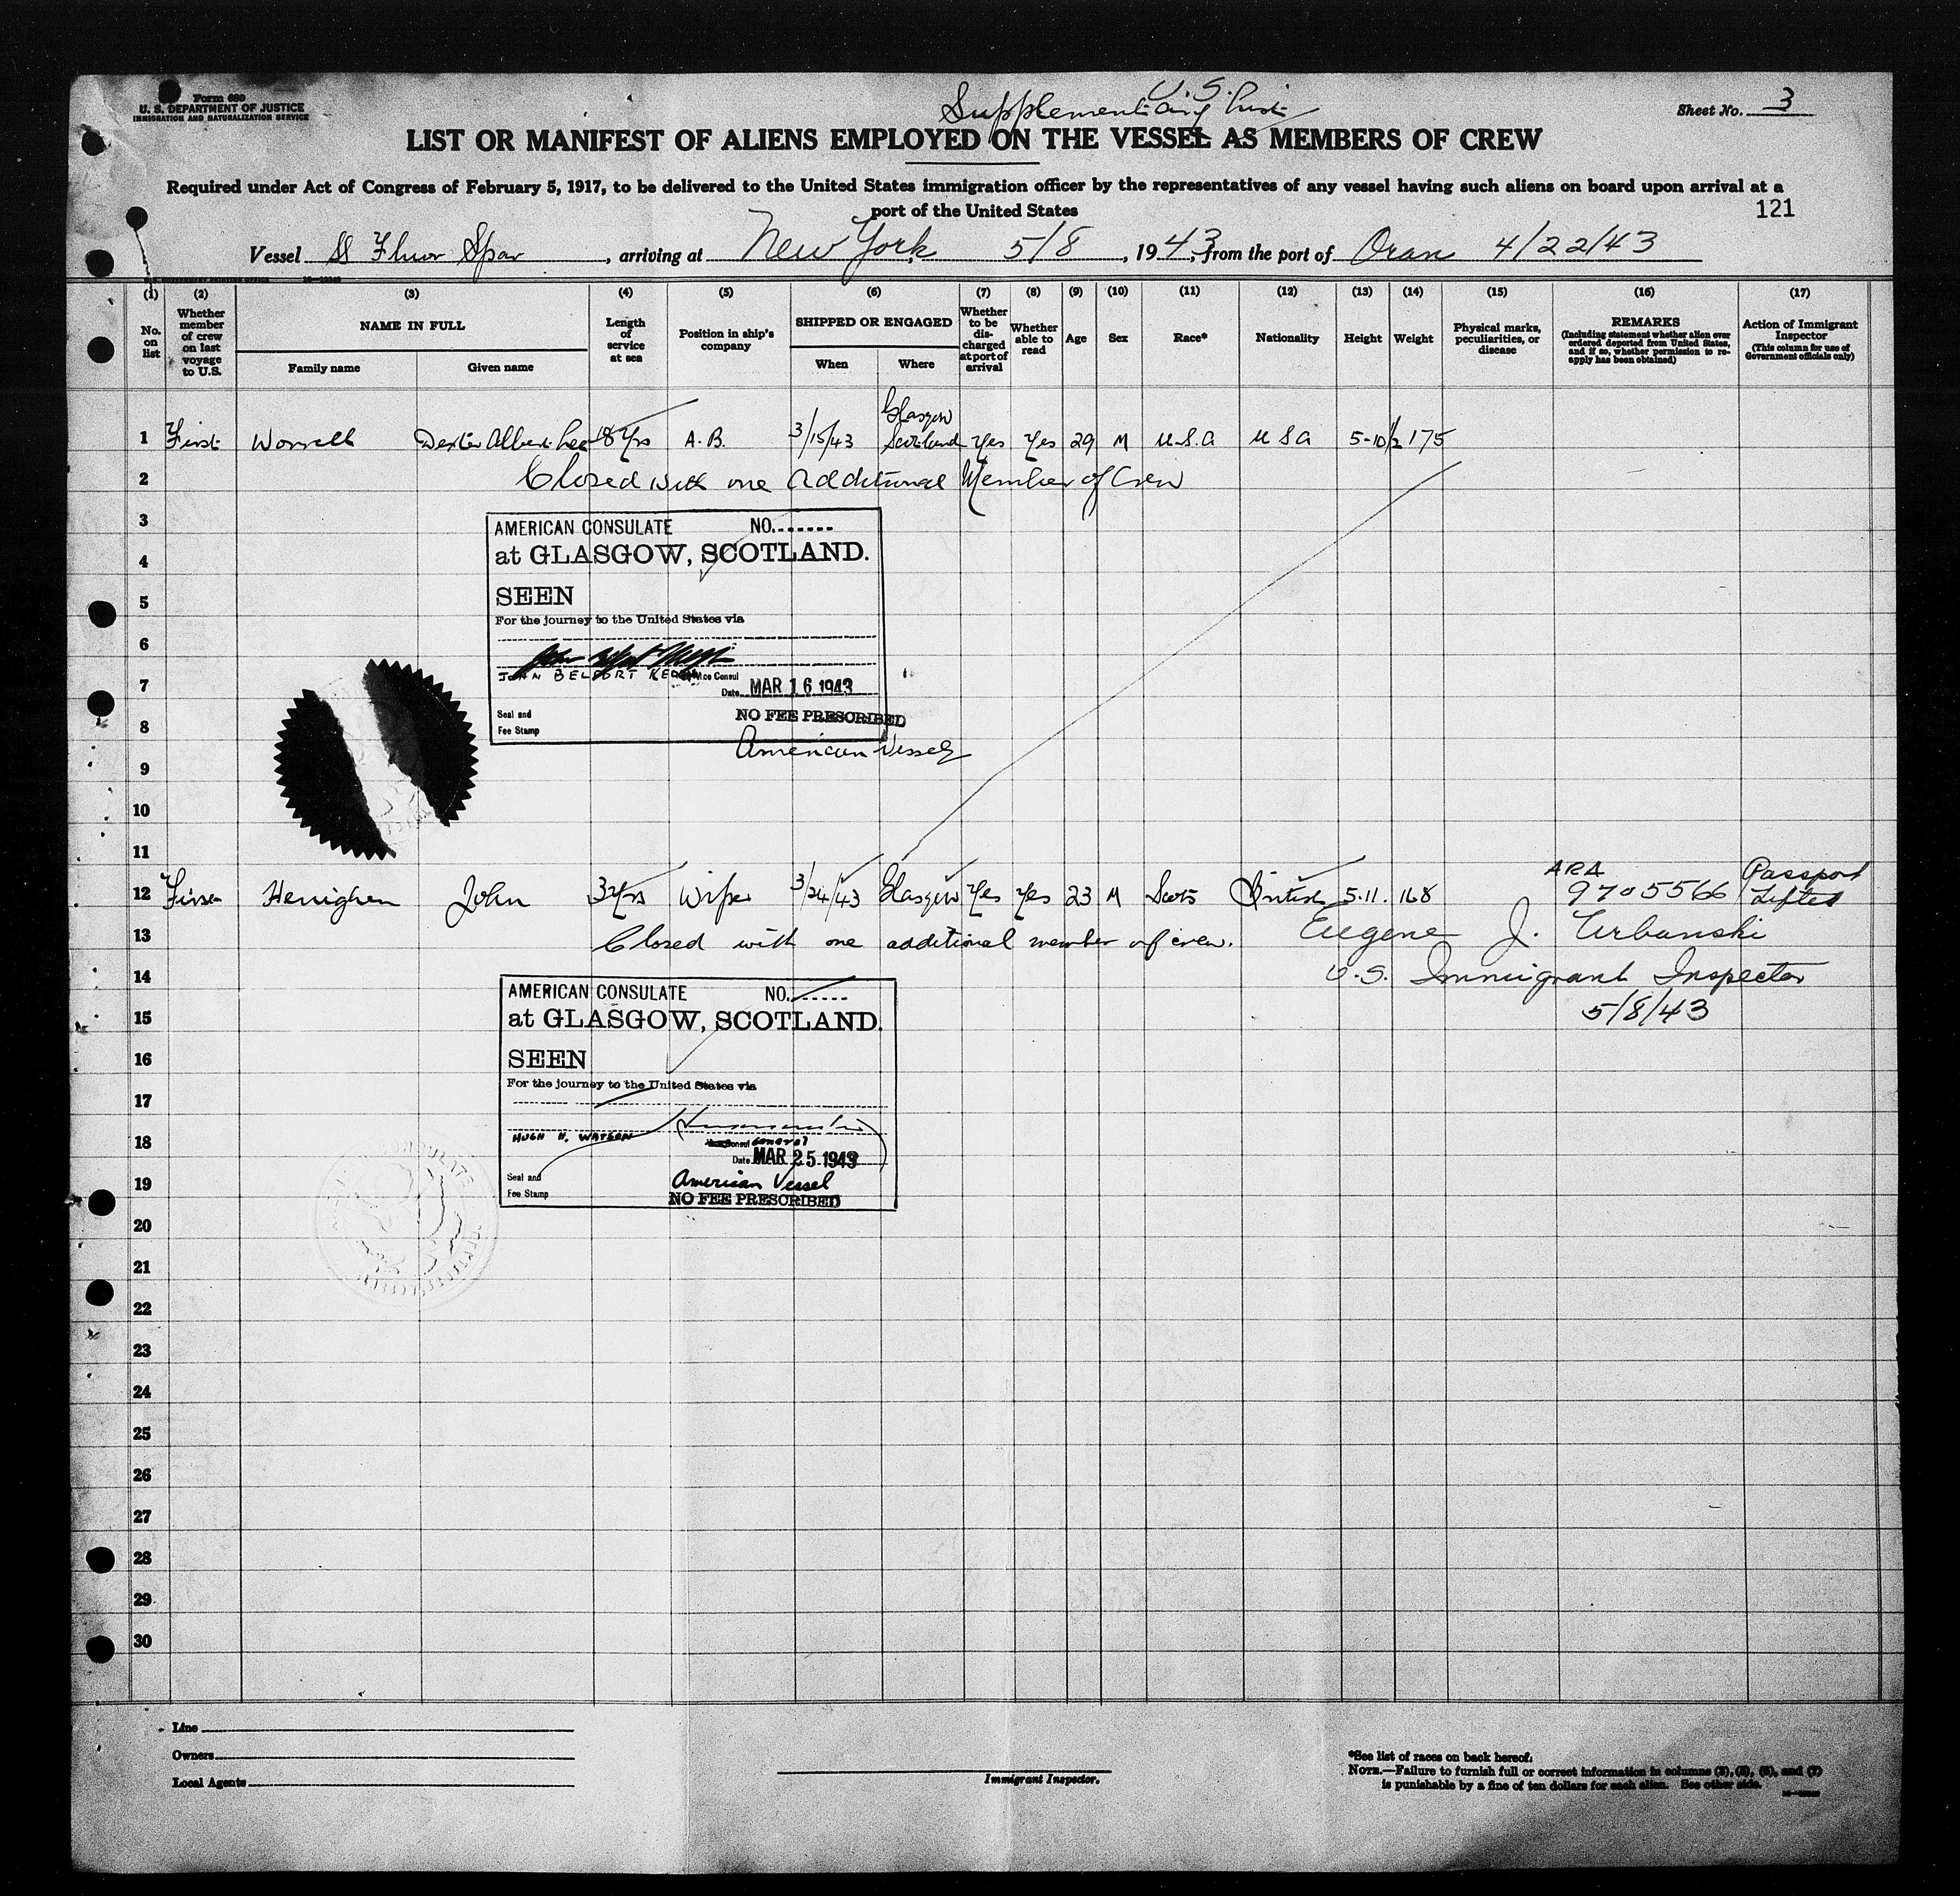 Form 680
U. S. DEPARTMENT OF JUSTICE
IMMIGRATION AND NATURALIZATION SERVICE
U.S.
Supplementary List
Sheet No. 3
LIST OR MANIFEST OF ALIENS EMPLOYED ON THE VESSEL AS MEMBERS OF CREW
Required under Act of Congress of February 5, 1917, to be delivered to the United States immigration officer by the representatives of any vessel having such aliens on board upon arrival at a
port of the United States
121
Vessel SS Fluor Spar, arriving at New York 5/8, 1943, from the port of Oran 4/22/43
(1) (2) (3) (4) (5) (6) (7) (8) (9) (10) (11) (12) (13) (14) (15) (16) (17)
No. on list
Whether member of crew on last voyage to U.S.
NAME IN FULL
Family name
Given name
Length of service at sea
Position in ship's company
SHIPPED OR ENGAGED
When
Where
Whether to be discharged at port of arrival
Whether able to read
Age
Sex
Race*
Nationality
Height
Weight
Physical marks, peculiarities, or disease
REMARKS
(Including statement whether alien ever ordered deported from United States, and if so, whether permission to reapply has been obtained)
Action of Immigrant Inspector
(This column for use of Government officials only)
1 First Worrell Dexter Albert Lee 8 Yrs A.B. 3/15/43 Glasgow Scotland Yes Yes 29 M U.S.A USA 5-10 1/2 175
2 Closed with one additional Member of Crew
3
AMERICAN CONSULATE NO.
4
at GLASGOW, SCOTLAND.
5
SEEN
For the journey to the United States via
6
JOHN BELFORT Vice Consul
7
Date MAR 16 1943
Seal and
Fee Stamp
NO FEE PRESCRIBED
8
American Vessel
9
10
11
12 First Henighen John 3 Yrs Wiper 3/24/43 Glasgow Yes Yes 23 M Scots British 5.11. 168 ARA 9705566 Passport Lifted
13 Closed with one additional member of crew. Eugene J. Urbanski
14 U.S. Immigrant Inspector
AMERICAN CONSULATE NO.
15 5/8/43
at GLASGOW, SCOTLAND.
16
SEEN
For the journey to the United States via
17
18
HUGH H. WATSON
Consul General
Date MAR 25 1943
19
Seal and
Fee Stamp
American Vessel
NO FEE PRESCRIBED
20
21
22
23
24
25
26
27
28
29
30
Line
Owners
Local Agents
Immigrant Inspector.
*See list of races on back hereof.
NOTE.—Failure to furnish full or correct information in columns (2), (3), (6), and (7)
is punishable by a fine of ten dollars for each alien. See other side.